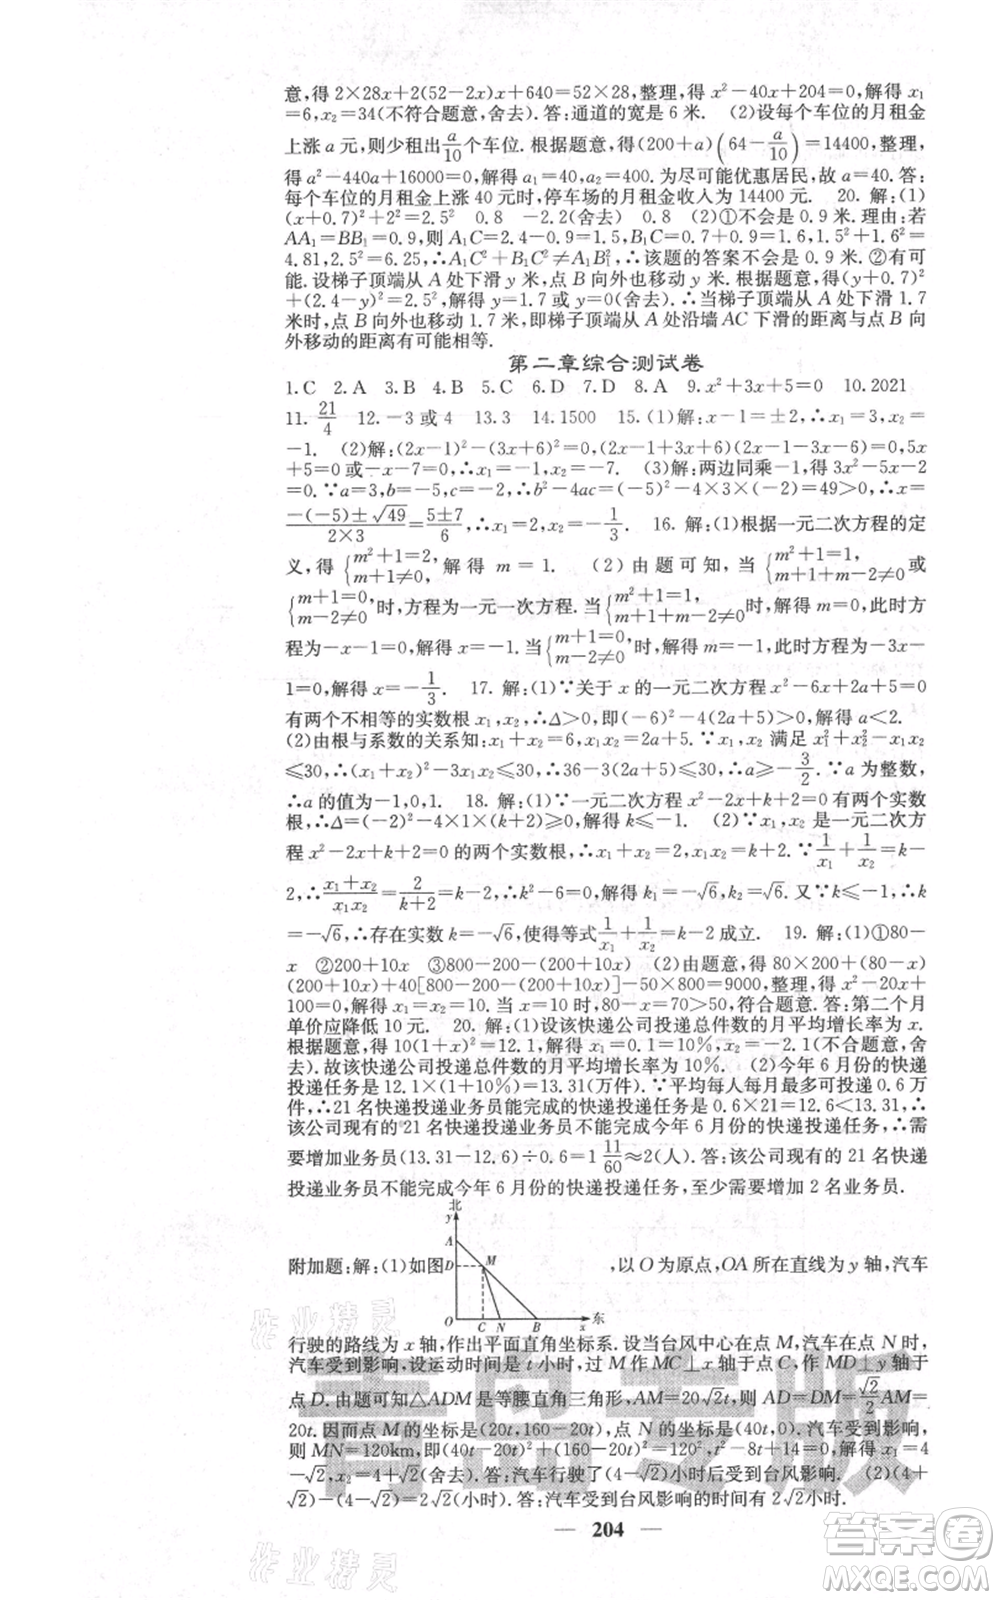 意,得2×28x+2(52-2x)x+640=52×28,整理,得x²-40x+204=0,解得x₁
=6,x₂=34(不符合题意,舍去).答:通道的宽是6米. (2)设每个车位的月租金
上涨a元,则少租出a/10个车位.根据题意,得(200+a)(64-a/10)=14400,整理,
得a²-440a+16000=0,解得a₁=40,a₂=400.为尽可能优惠居民,故a=40.答:
每个车位的月租金上涨40元时,停车场的月租金收入为14400元. 20.解:(1)
(x+0.7)²+2²=2.5² 0.8 -2.2(舍去) 0.8 (2)①不会是0.9米.理由:若
AA₁=BB₁=0.9,则A₁C=2.4-0.9=1.5,B₁C=0.7+0.9=1.6,1.5²+1.6²=
4.81,2.5²=6.25,∴A₁C²+B₁C²≠A₁B₁²,∴该题的答案不会是0.9米.②有可
能.设梯子顶端从A处下滑y米,点B向外也移动y米.根据题意,得(y+0.7)²
+(2.4-y)²=2.5²,解得y=1.7或y=0(舍去).∴当梯子顶端从A处下滑1.7
米时,点B向外也移动1.7米,即梯子顶端从A处沿墙AC下滑的距离与点B向
外移动的距离有可能相等.
第二章综合测试卷
1.C 2.A 3.B 4.B 5.C 6.D 7.D 8.A 9.x²+3x+5=0 10.2021
11.21/4 12.-3或4 13.3 14.1500 15.(1)解:x-1=±2,∴x₁=3,x₂=
-1. (2)解:(2x-1)²-(3x+6)²=0,(2x-1+3x+6)(2x-1-3x-6)=0,5x
+5=0或-x-7=0,∴x₁=-1,x₂=-7. (3)解:两边同乘-1,得3x²-5x-2
=0.∵a=3,b=-5,c=-2,∴b²-4ac=(-5)²-4×3×(-2)=49>0,∴x=
(-(-5)±√49)/(2×3)=(5±7)/6,∴x₁=2,x₂=-1/3. 16.解:(1)根据一元二次方程的定
义,得{m²+1=2, m+1≠0, 解得m=1. (2)由题可知,当{m²+1=1, m+1+m-2≠0或
{m+1=0, m-2≠0时,方程为一元一次方程.当{m²+1=1, m+1+m-2≠0时,解得m=0,此时方
程为-x-1=0,解得x=-1.当{m+1=0, m-2≠0时,解得m=-1,此时方程为-3x-
1=0,解得x=-1/3. 17.解:(1)∵关于x的一元二次方程x²-6x+2a+5=0
有两个不相等的实数根x₁,x₂,∴Δ>0,即(-6)²-4(2a+5)>0,解得a<2.
(2)由根与系数的关系知:x₁+x₂=6,x₁x₂=2a+5.∵x₁,x₂满足x₁²+x₂²-x₁x₂
≤30,∴(x₁+x₂)²-3x₁x₂≤30,∴36-3(2a+5)≤30,∴a≥-3/2.∵a为整数,
∴a的值为-1,0,1. 18.解:(1)∵一元二次方程x²-2x+k+2=0有两个实数
根,∴Δ=(-2)²-4×1×(k+2)≥0,解得k≤-1. (2)∵x₁,x₂是一元二次方
程x²-2x+k+2=0的两个实数根,∴x₁+x₂=2,x₁x₂=k+2.∵1/x₁+1/x₂=k-
2,∴(x₁+x₂)/(x₁x₂)=2/(k+2)=k-2,∴k²-6=0,解得k₁=-√6,k₂=√6.又∵k≤-1,∴k
=-√6,∴存在实数k=-√6,使得等式1/x₁+1/x₂=k-2成立. 19.解:(1)①80-
x ②200+10x ③800-200-(200+10x) (2)由题意,得80×200+(80-x)
(200+10x)+40[800-200-(200+10x)]-50×800=9000,整理,得x²-20x+
100=0,解得x₁=x₂=10.当x=10时,80-x=70>50,符合题意.答:第二个月
单价应降低10元. 20.解:(1)设该快递公司投递总件数的月平均增长率为x.
根据题意,得10(1+x)²=12.1,解得x₁=0.1=10%,x₂=-2.1(不符合题意,舍
去).故该快递公司投递总件数的月平均增长率为10%. (2)今年6月份的快递
投递任务是12.1×(1+10%)=13.31(万件).∵平均每人每月最多可投递0.6万
件,∴21名快递投递业务员能完成的快递投递任务是0.6×21=12.6<13.31,∴
该公司现有的21名快递投递业务员不能完成今年6月份的快递投递任务,∴需
要增加业务员(13.31-12.6)÷0.6=1 11/60≈2(人).答:该公司现有的21名快递
投递业务员不能完成今年6月份的快递投递任务,至少需要增加2名业务员.
北
y
A
D
M
O
C
N
B
x
东
附加题:解:(1)如图 ,以O为原点,OA所在直线为y轴,汽车
行驶的路线为x轴,作出平面直角坐标系.设当台风中心在点M,汽车在点N时,
汽车受到影响,设运动时间是t小时,过M作MC⊥x轴于点C,作MD⊥y轴于
点D.由题可知△ADM是等腰直角三角形,AM=20√2t,则AD=DM=√2/2AM=
20t.因而点M的坐标是(20t,160-20t),点N的坐标是(40t,0).汽车受到影响,
则MN=120km,即(40t-20t)²+(160-20t)²=120²,t²-8t+14=0.解得x₁=4
-√2,x₂=4+√2(舍去).答:汽车行驶了(4-√2)小时后受到台风影响. (2)(4+
√2)-(4-√2)=2√2(小时).答:汽车受到台风影响的时间有2√2小时.
204
青岛专版
作业精灵
作业精灵
答案卷
MXQE.COM